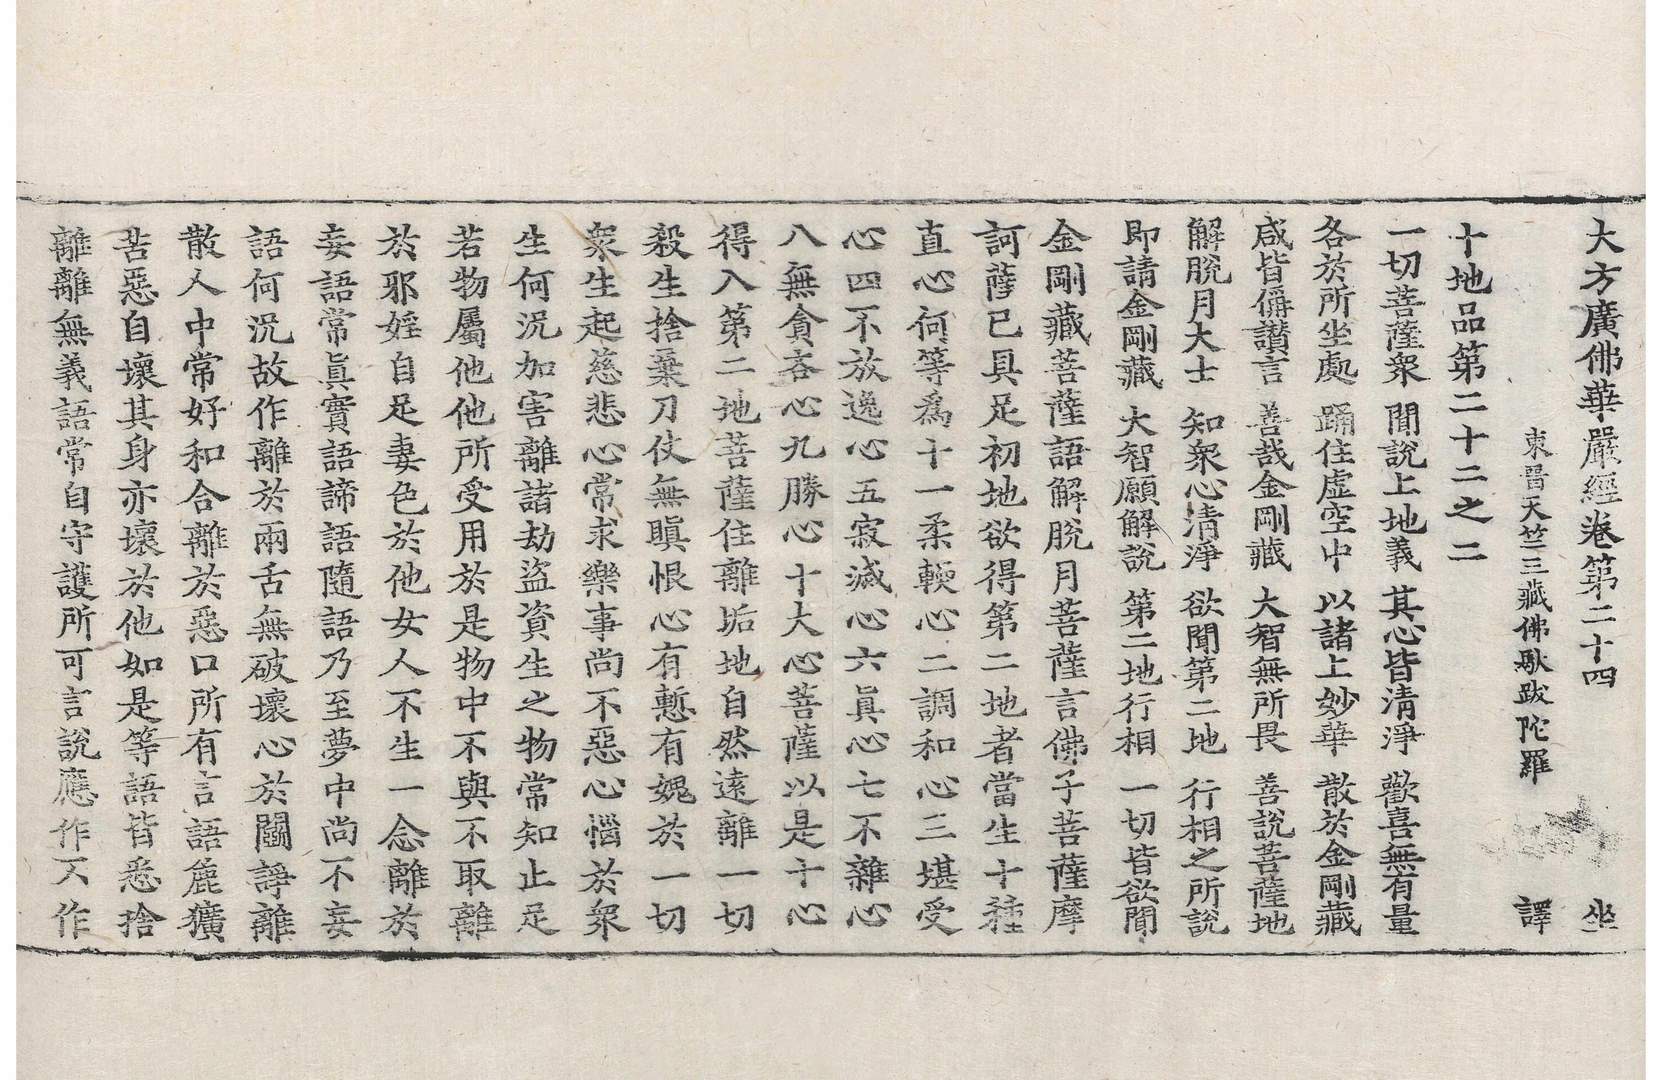 大方廣佛華嚴經卷第二十四 坐
東晉天竺三藏佛馱跋陀羅 譯
十地品第二十二之二
一切菩薩衆 聞說上地義 其心皆清淨 歡喜無有量
各於所坐處 踊住虛空中 以諸上妙華 散於金剛藏
咸皆偁讃言 善哉金剛藏 大智無所畏 善說菩薩地
解脫月大士 知衆心清淨 欲聞第二地 行相之所說
即請金剛藏 大智願解說 第二地行相 一切皆欲聞
金剛藏菩薩語解脫月菩薩言佛子菩薩摩
訶薩已具足初地欲得第二地者當生十種
直心何等爲十一柔輭心二調和心三堪受
心四不放逸心五寂滅心六眞心七不雜心
八無貪吝心九勝心十大心菩薩以是十心
得入第二地菩薩住離垢地自然遠離一切
殺生捨棄刀仗無瞋恨心有慙有媿於一切
衆生起慈悲心常求樂事尚不惡心惱於衆
生何況加害離諸劫盜資生之物常知止足
若物屬他他所受用於是物中不與不取離
於邪婬自足妻色於他女人不生一念離於
妄語常眞實語諦語隨語乃至夢中尚不妄
語何況故作離於兩舌無破壞心於鬬諍離
散人中常好和合離於惡口所有言語麁獷
苦惡自壞其身亦壞於他如是等語皆悉捨
離離無義語常自守護所可言說應作不作